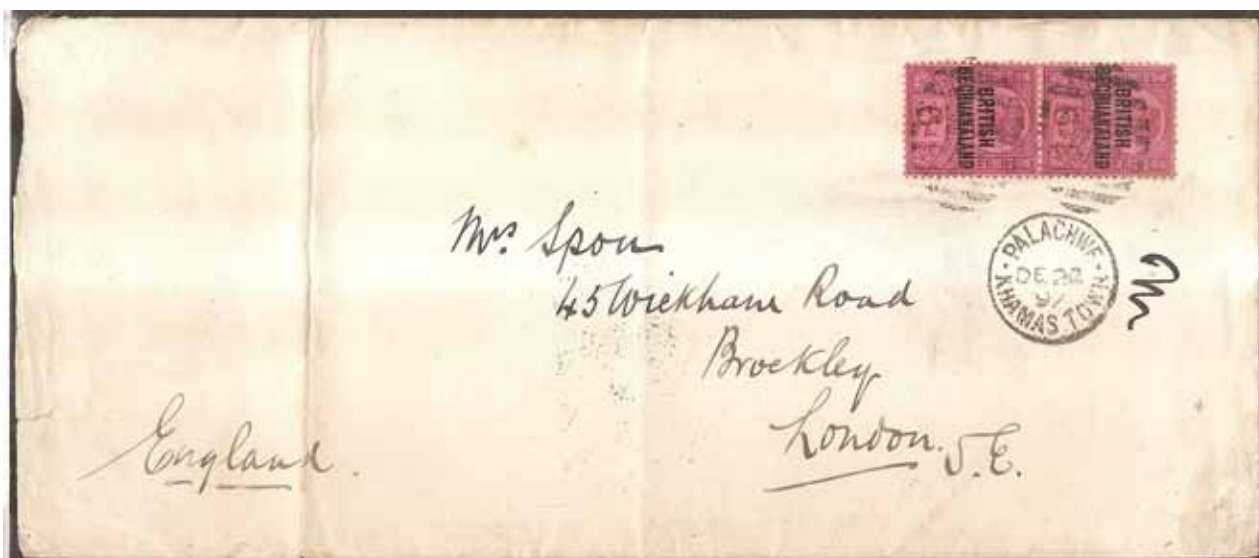 BRITISH
BECHUANALAND
BRITISH
BECHUANALAND
PALACHWE
DE 22
97
KHAMAS TOWN
Mrs. Spon
45 Wickham Road
Brockley
London. S.E.
England.